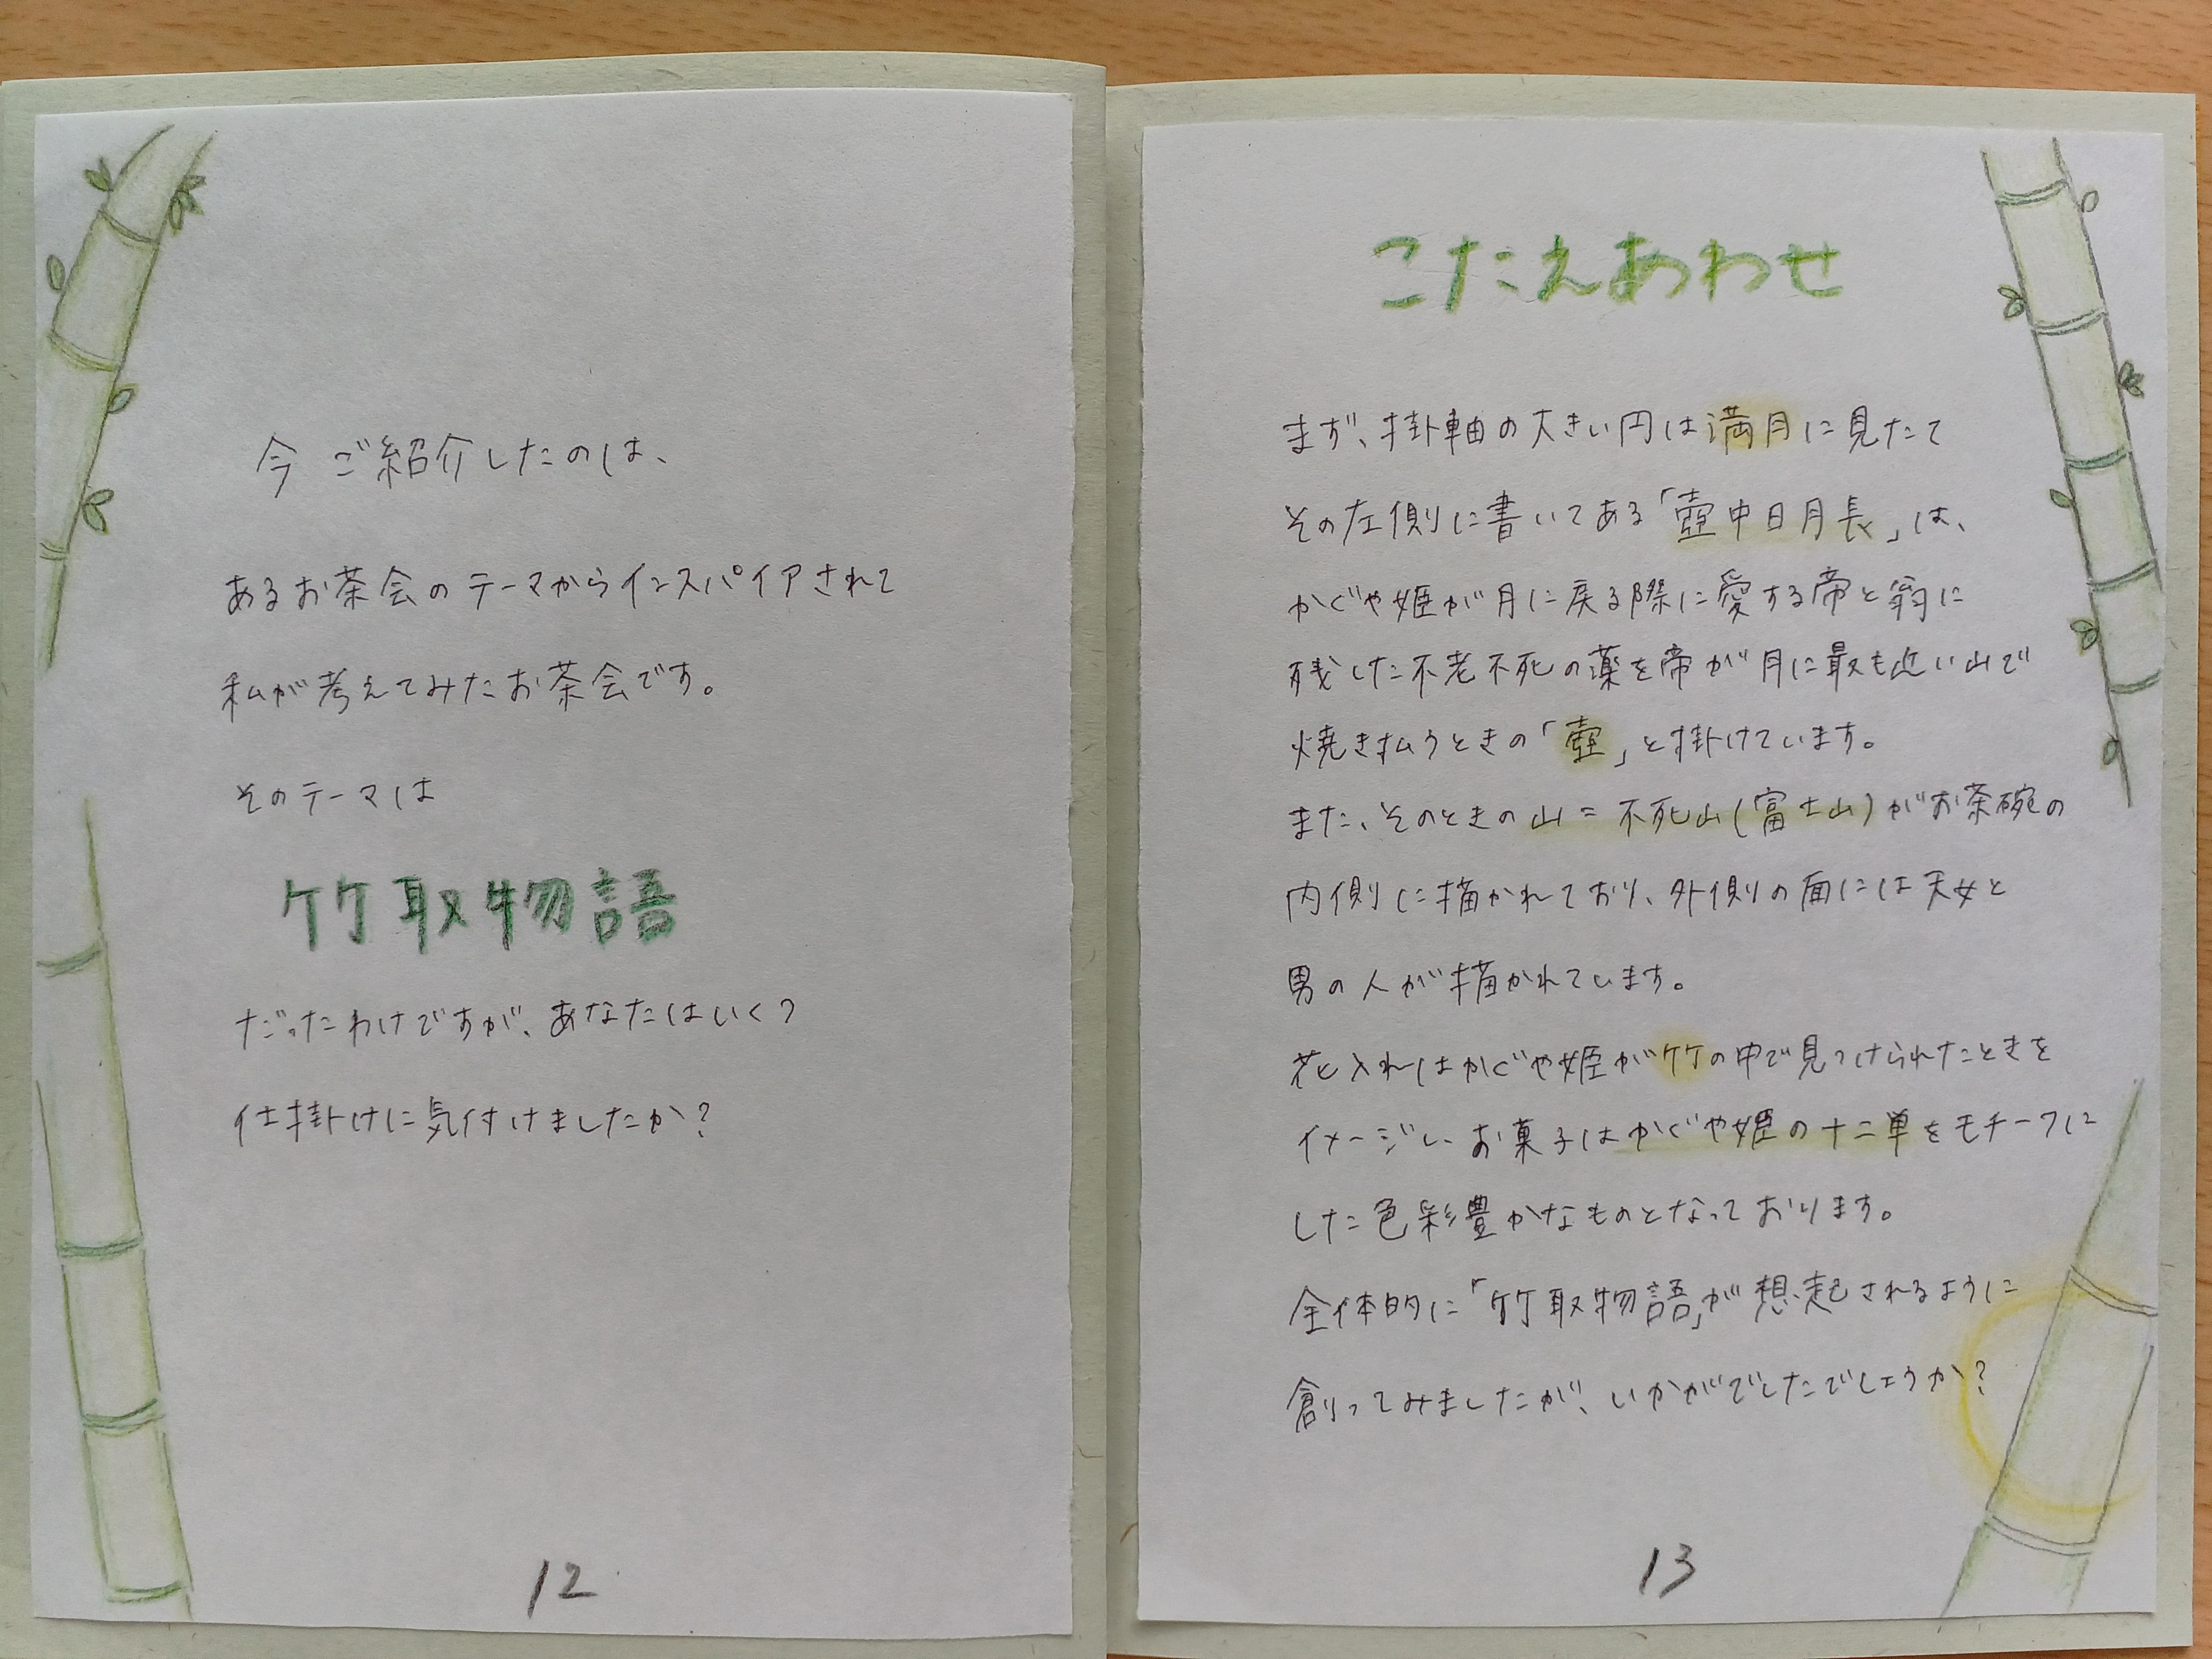 今 ご紹介したのは、
あるお茶会のテーマからインスパイアされて
私が考えてみたお茶会です。
そのテーマは
竹取物語
だったわけですが、あなたはいくつ
仕掛けに気付けましたか?
12
こたえあわせ
まず、掛軸の大きい円は満月に見たて
その左側に書いてある「壺中日月長」は、
かぐや姫が月に戻る際に愛する帝と翁に
残した不老不死の薬を帝が月に最も近い山で
焼き払うときの「壺」と掛けています。
また、そのときの山=不死山(富士山)がお茶碗の
内側に描かれており、外側の面には天女と
男の人が描かれています。
花入れはかぐや姫が竹の中で見つけられたときを
イメージし、お菓子はかぐや姫の十二単をモチーフに
した色彩豊かなものとなっております。
全体的に「竹取物語」が想起されるように
創ってみましたが、いかがでしたでしょうか?
13